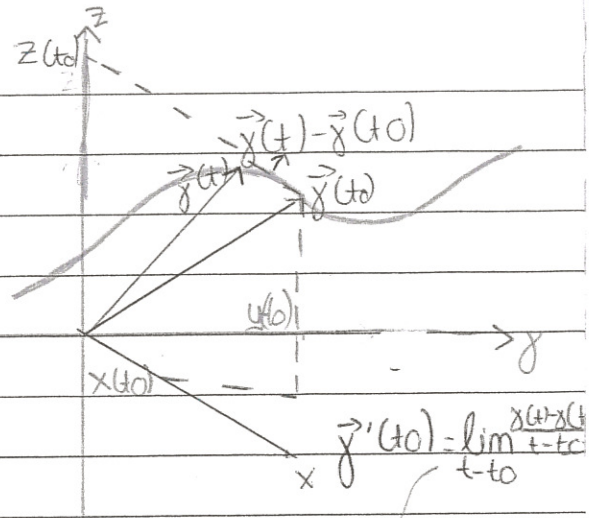 z
z(t0)
γ⃗(t)-γ⃗(t0)
γ⃗(t)
γ⃗(t0)
y(t0)
y
x(t0)
x
γ⃗'(t0)=lim γ(t)-γ(t
t-t0
t-t0